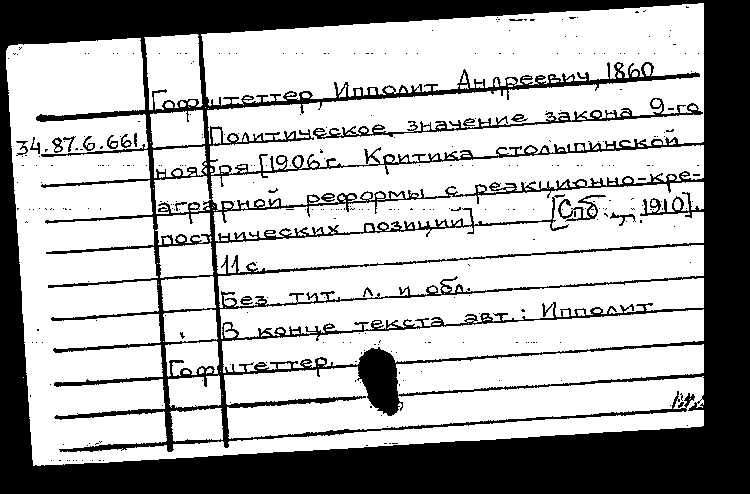 Гофштеттер, Ипполит Андреевич, 1860
34.87.6.661. Политическое значение закона 9-го
ноября [1906 г. Критика столыпинской
аграрной реформы с реакционно-кре-
постнических позиций]. [Спб., 1910].
11 с.
Без тит. л. и обл.
В конце текста авт.: Ипполит
Гофштеттер.